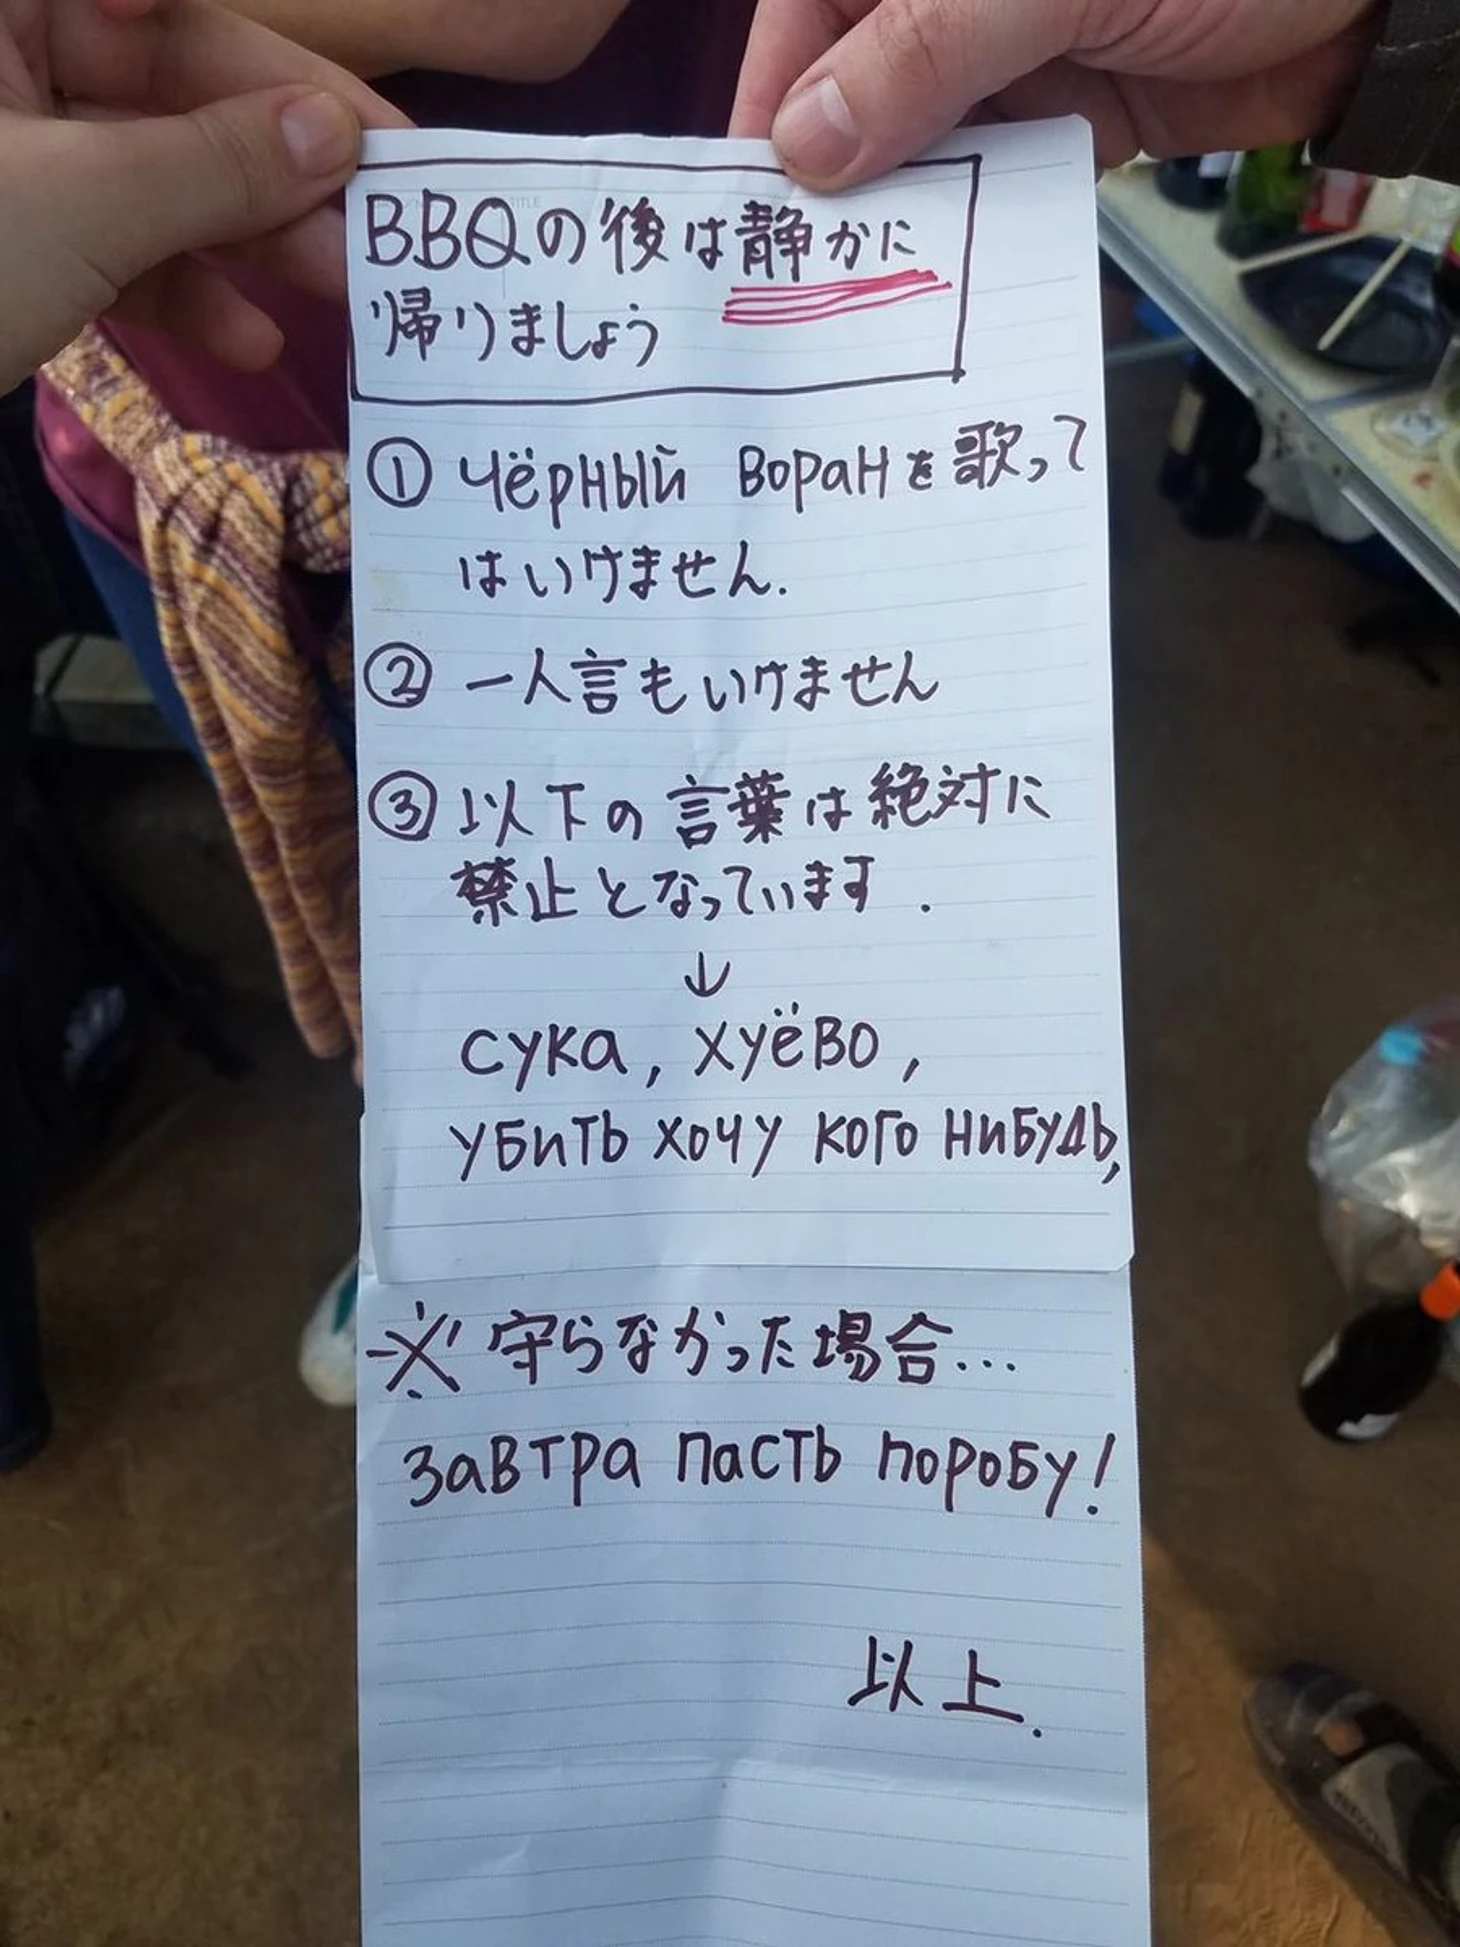 BBQの後は静かに
帰りましょう
① чёрный воранを歌って
はいけません.
② 一人言もいけません
③ 以下の言葉は絶対に
禁止となっています.
↓
сука, хуёво,
убить хочу кого нибудь,
※ 守らなかった場合...
завтра пасть поробу!
以上.